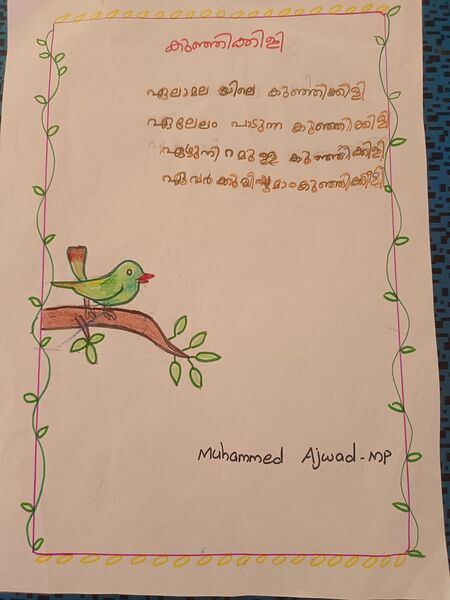 കുഞ്ഞിക്കിളി
ഏലാമല യിലെ കുഞ്ഞിക്കിളി
ഏലേലം പാടുന്ന കുഞ്ഞിക്കിളി
ഏഴുനിറമുള്ള കുഞ്ഞിക്കിളി
ഏവർക്കുമിഷ്ടമാംകുഞ്ഞിക്കിളി
Muhammed Ajwad-MP